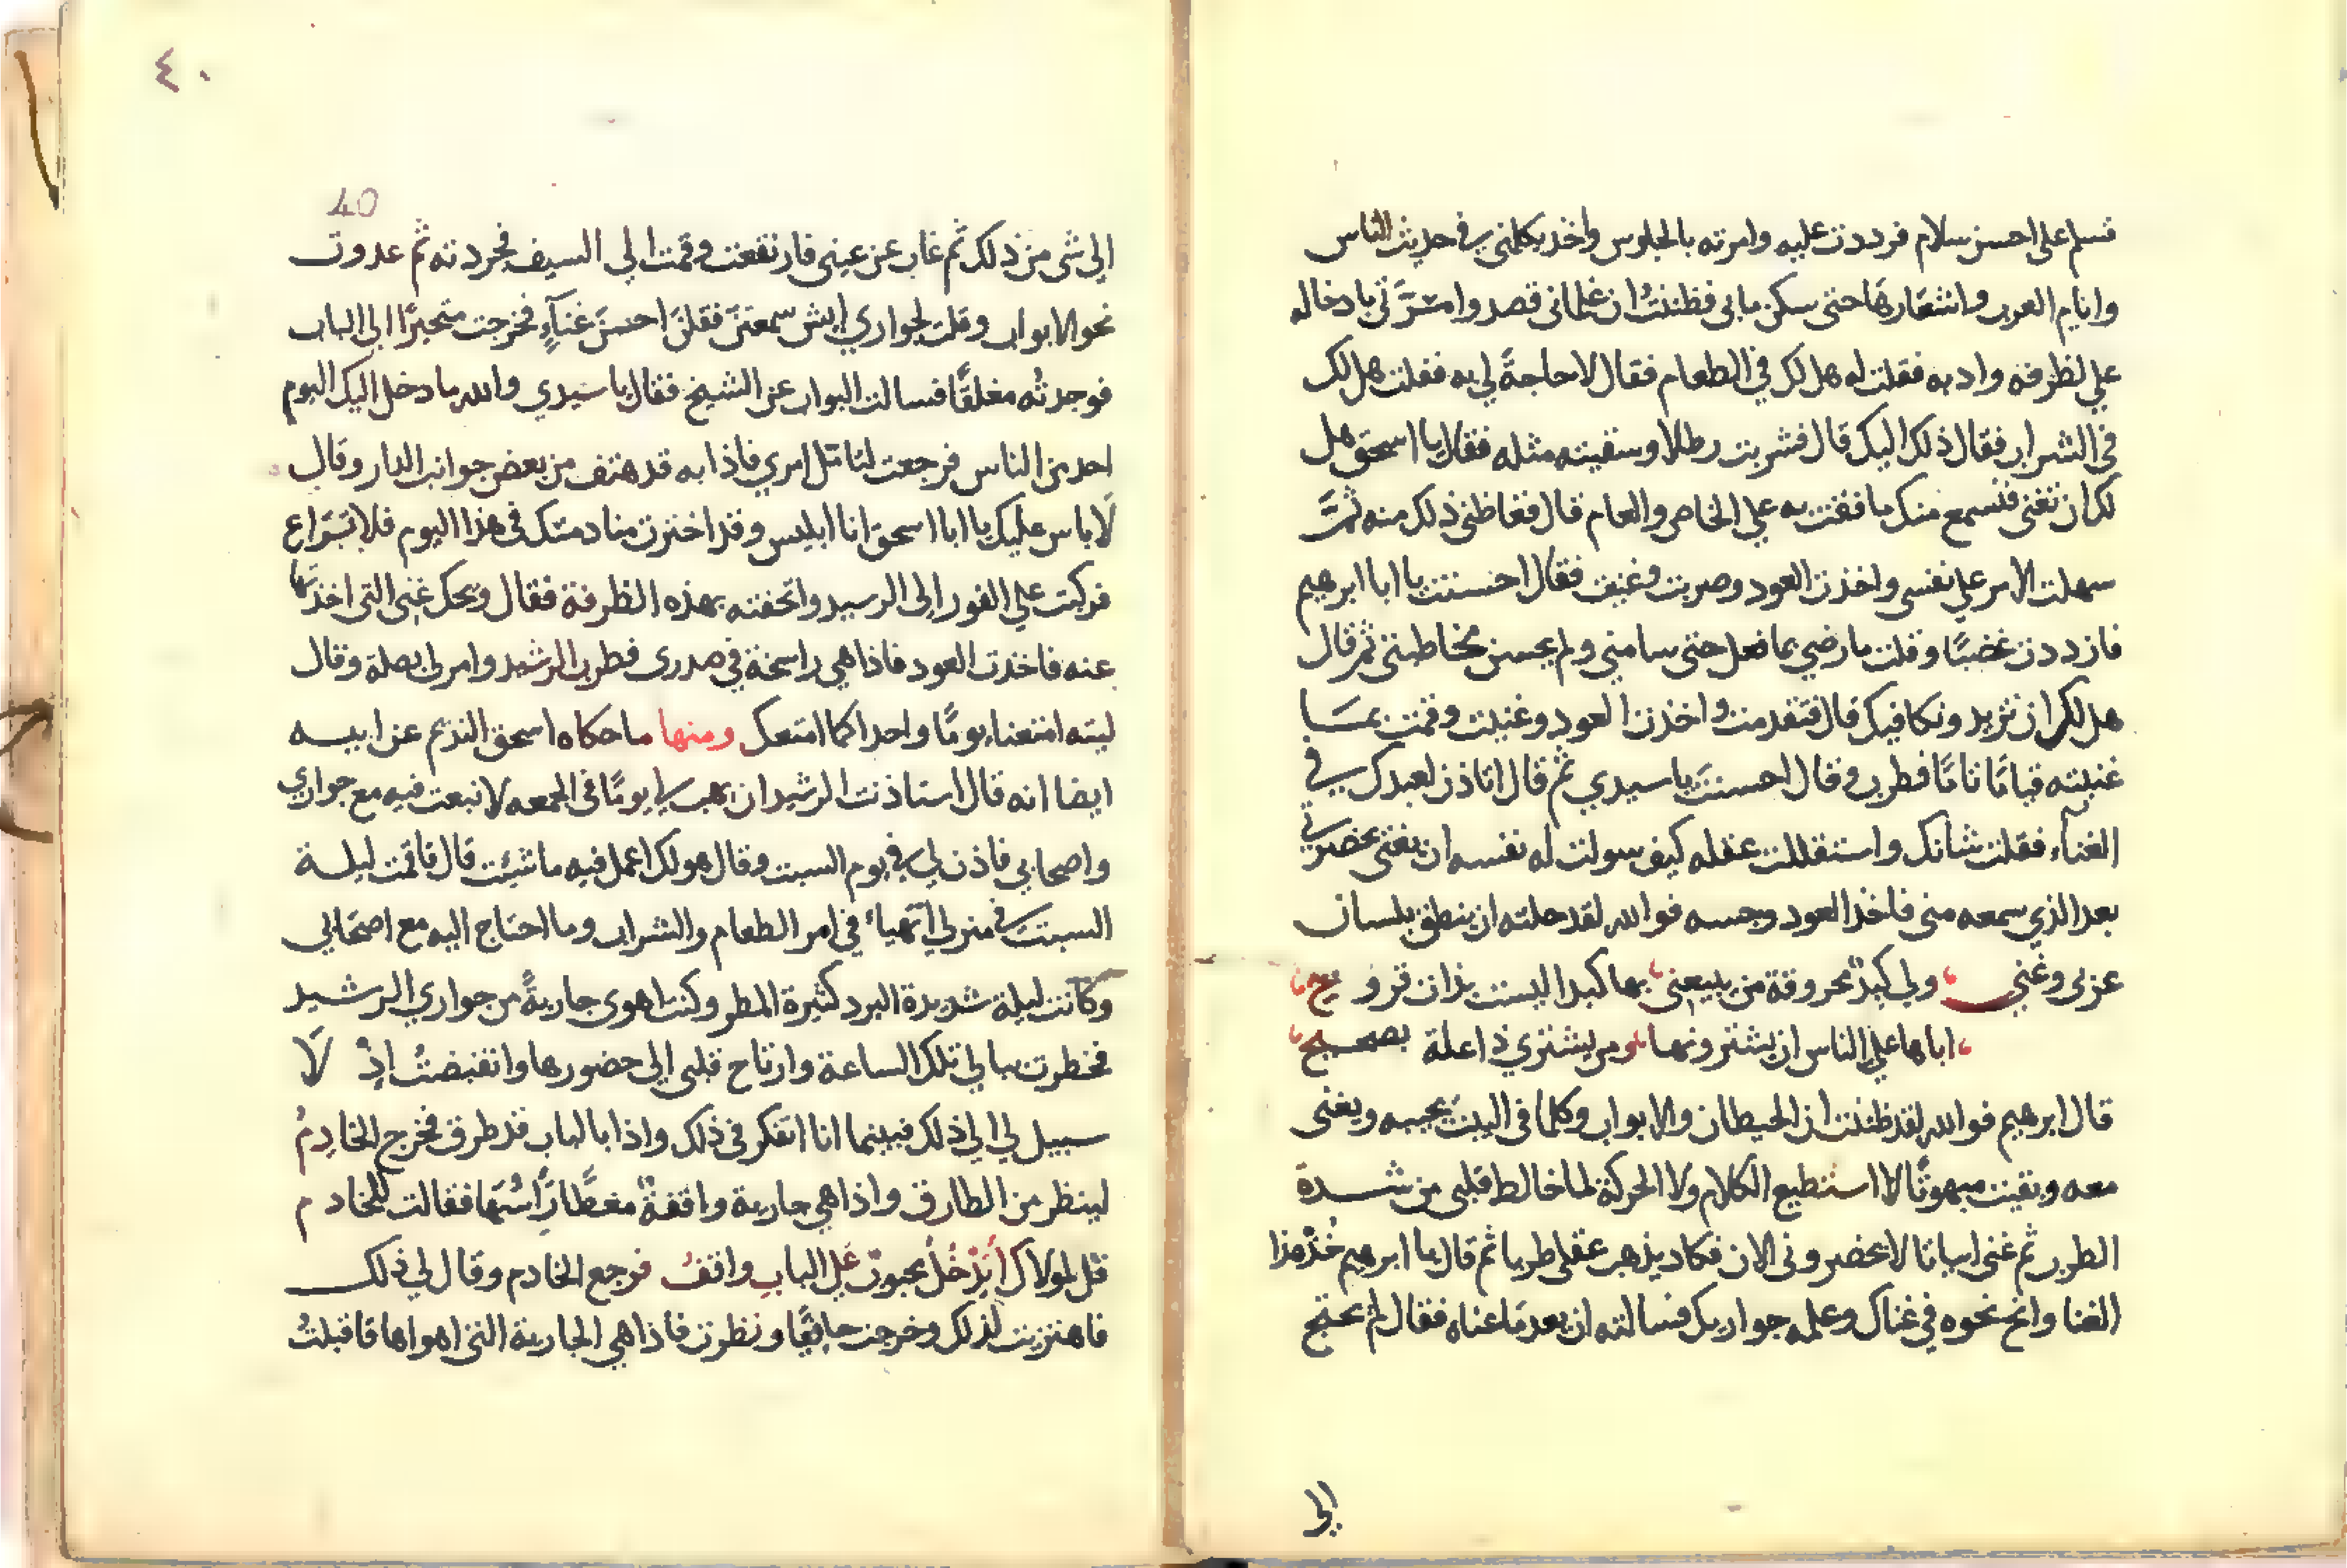 فسلم علي احسن سلام فرددت عليه وامرته بالجلوس واخذ يكلمني في حديث الناس
وايام العرب واشعارها حتي سكن ما بي فظننتُ ان غلماني قصدوا مسرّتي بادخاله
علي لظرفه وادبه فقلت له هل لك في الطعام فقال لا حاجةً لي به فقلت هل لك
في الشراب فقال ذلك اليك قال فشربت رطلا وسقيته مثله فقال يا اسحق هل
لك ان تغني فنسمع منك ما فقت به علي الخاص والعام قال فغاظني ذلك منه ثمَّ
سهلت الامر علي نفسي واخذت العود وضربت وغنيت فقال احسنت يا ابا ابرهيم
فازددت غضبًا وقلت ما رضي بما فعل حتي سامني ولم يحسن مخاطبتي ثم قال
هل لك ان تزيد ونكافيك قال فتقدمت واخذت العود وغنيت وقمت بما
غنيته قيامًا تامًا فطرب وقال احسنتَ يا سيدي ثم قال اتاذن لعبدك في
الغناء فقلت شانك واستقللت عقله كيف سولت له نفسه ان يغني بحضرتي
بعد الذي سمعه مني فاخذ العود وجسه فوالله لقد خلته ان ينطق بلسان
عربي وغني ولي كبدٌ محروقة من يبيعني بها كبدا ليست بذات قروح
اباها علي الناس ان يشترونها ومن يشتري ذا علة بصحيح
قال ابرهيم فوالله لقد ظننت ان الحيطان والابواب وكلما في البيت يجيبه ويغني
معه وبقيت مبهوتًا لا استطيع الكلام ولا الحركة لما خالط قلبي من شدة
الطرب ثم غني ابياتا لا تحضروني الان فكاد يذهب عقلي طربا ثم قال يا ابرهيم خُذْ هذا
الغنا وانح نحوه في غناك وعلمه جواريك فسالته ان يعيد ما غناه فقال لم تحتج
الي
٤٠
40
الي شي من ذلك ثم غاب عن عيني فارتفعت وقمت الي السيف فجردته ثم عدوت
نحو الابواب وقلت لجواري ايش سمعتنَّ فقلن احسنَ غنآءٍ فخرجت متحيرًا الي الباب
فوجدتُه مغلقًا فسالت البواب عن الشيخ فقال يا سيدي والله ما دخل اليك اليوم
احد من الناس فرجعت لتامل امري فاذا به قد هتف من بعض جوانب الدار وقال
لا باس عليك يا ابا اسحق انا ابليس وقد اخترت منادمتك في هذا اليوم فلا تتراع
فركبت علي الفور الي الرسيد واتحفته بهذه الظرفة فقال ويحك غني التي اخذتها
عنه فاخذت العود فاذا هي راسخة في صدري فطرب الرشيد وامر لي بصلة وقال
ليته امتعنا يومًا واحدا كما امتعك ومنها ما حكاه اسحق النديم عن ابيه
ايضا انه قال استاذنت الرشيد ان يهب لي يومًا في الجمعه لانبعث فيه مع جواري
واصحابي فاذن لي في يوم السبت وقال هو لك اعمل فيه ما شيئت قال فاقمت ليلة
السبت في منزلي اتهيأ في امر الطعام والشراب وما احتاج اليه مع اصحابي
وكانت ليلة شديدة البرد كثيرة المطر وكنت اهوي جاريةً من جواري الرشيد
فخطرت ببالي تلك الساعة وارتاح قلبي الي حضورها وانقبضتُ اذْ لَا
سبيل لي الي ذلك فبينما انا اتفكر في ذلك واذا بالباب قد طرق فخرج الخادِمُ
لينظر من الطارق واذا هي جارية واقفةٌ مغطًّا رَأسُها فقالت للخادم
قل لمولاك أيَدْخُلُ محبوبٌ عَلي البابِ واقفُ فرجع الخادم وقال لي ذلك
فاهتزيت لذلك وخرجت ونظرت فاذا هي الجارية التي اهواها فاقبلتُ